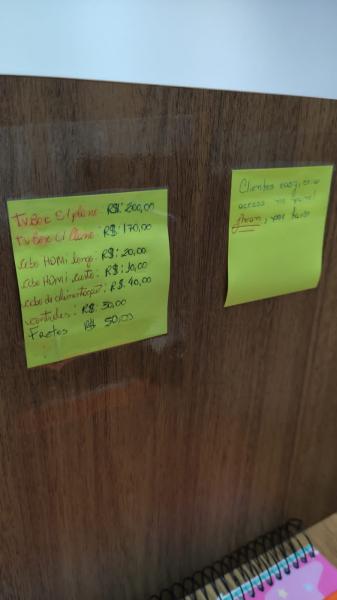 TVBox S/plano: R$: 200,00
TVBox C/ Plano: R$: 170,00
cabo HDMI longo: R$: 20,00
cabo HDMI curto: R$: 10,00
cabo de alimentação: R$: 40,00
controles: R$: 30,00
Fretes R$ 50,00
Clientes
acesso no painel